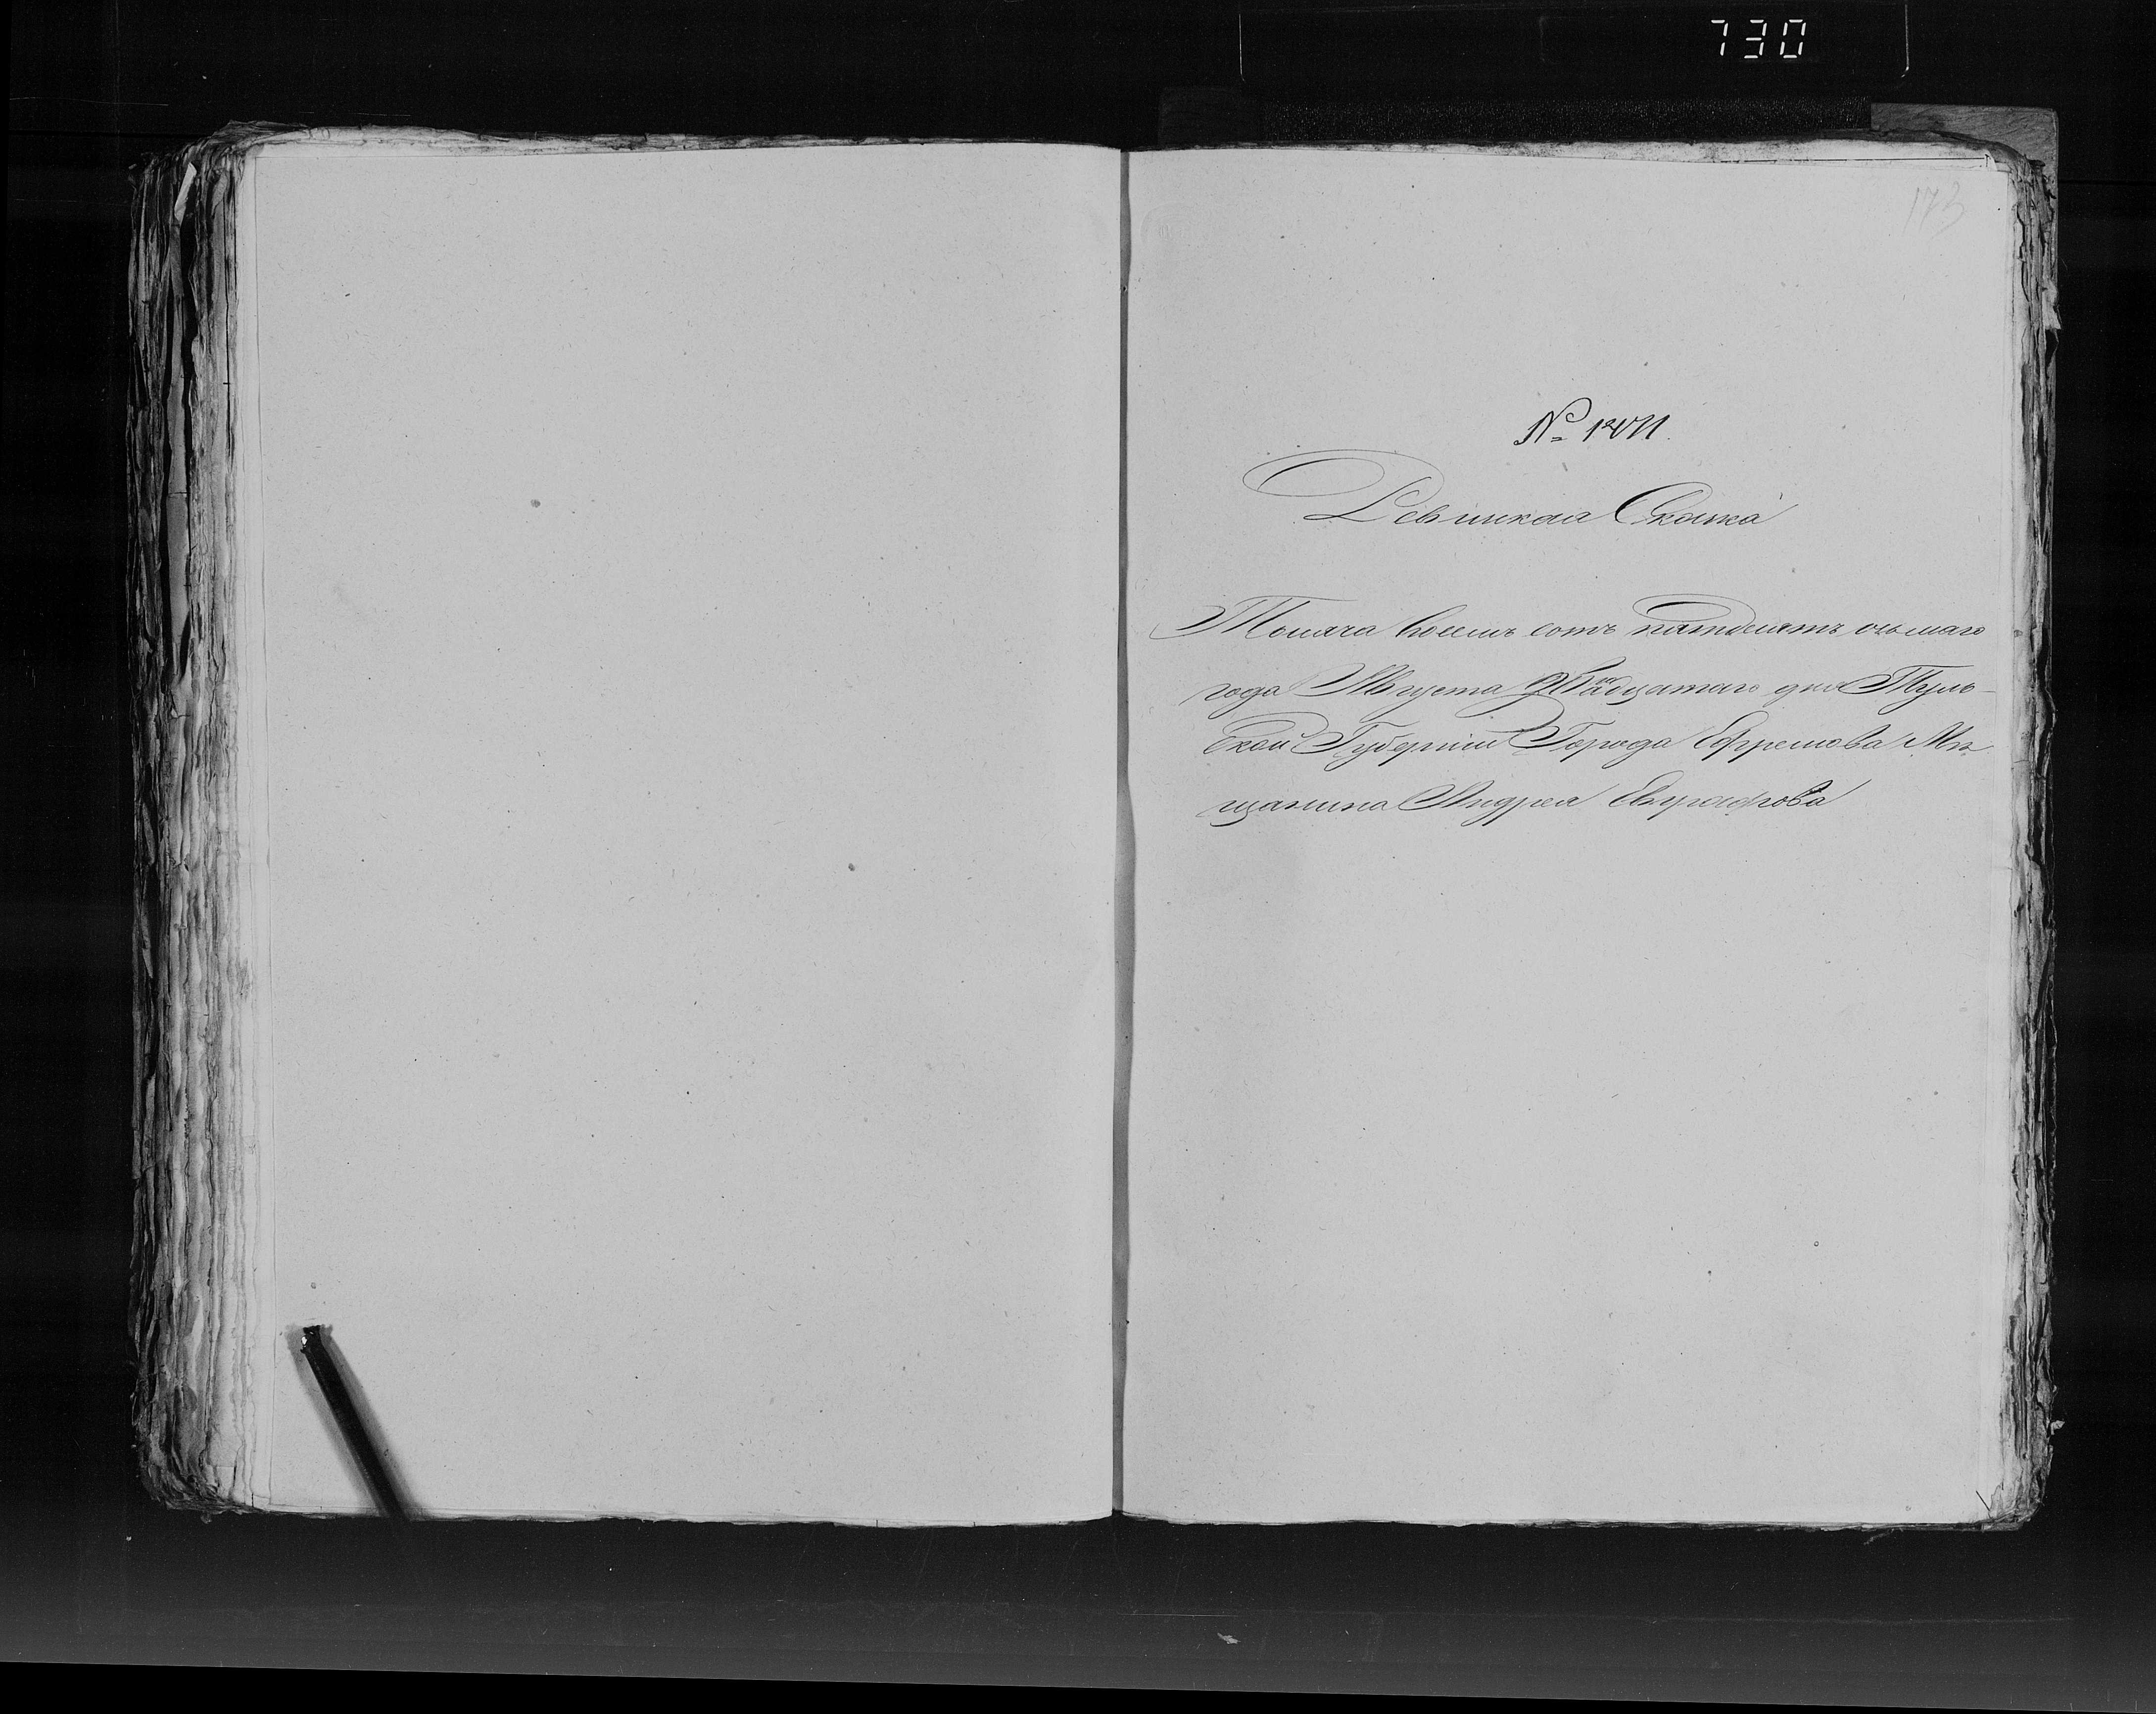 730
173
№
Ревизкая Сказка
Тысяча восемь сотъ пятдесятъ осьмаго
года Августа Двадцатаго дня Туль-
ской Губерніи Города Ефремова Мѣ
щанина Андрея Евграфова